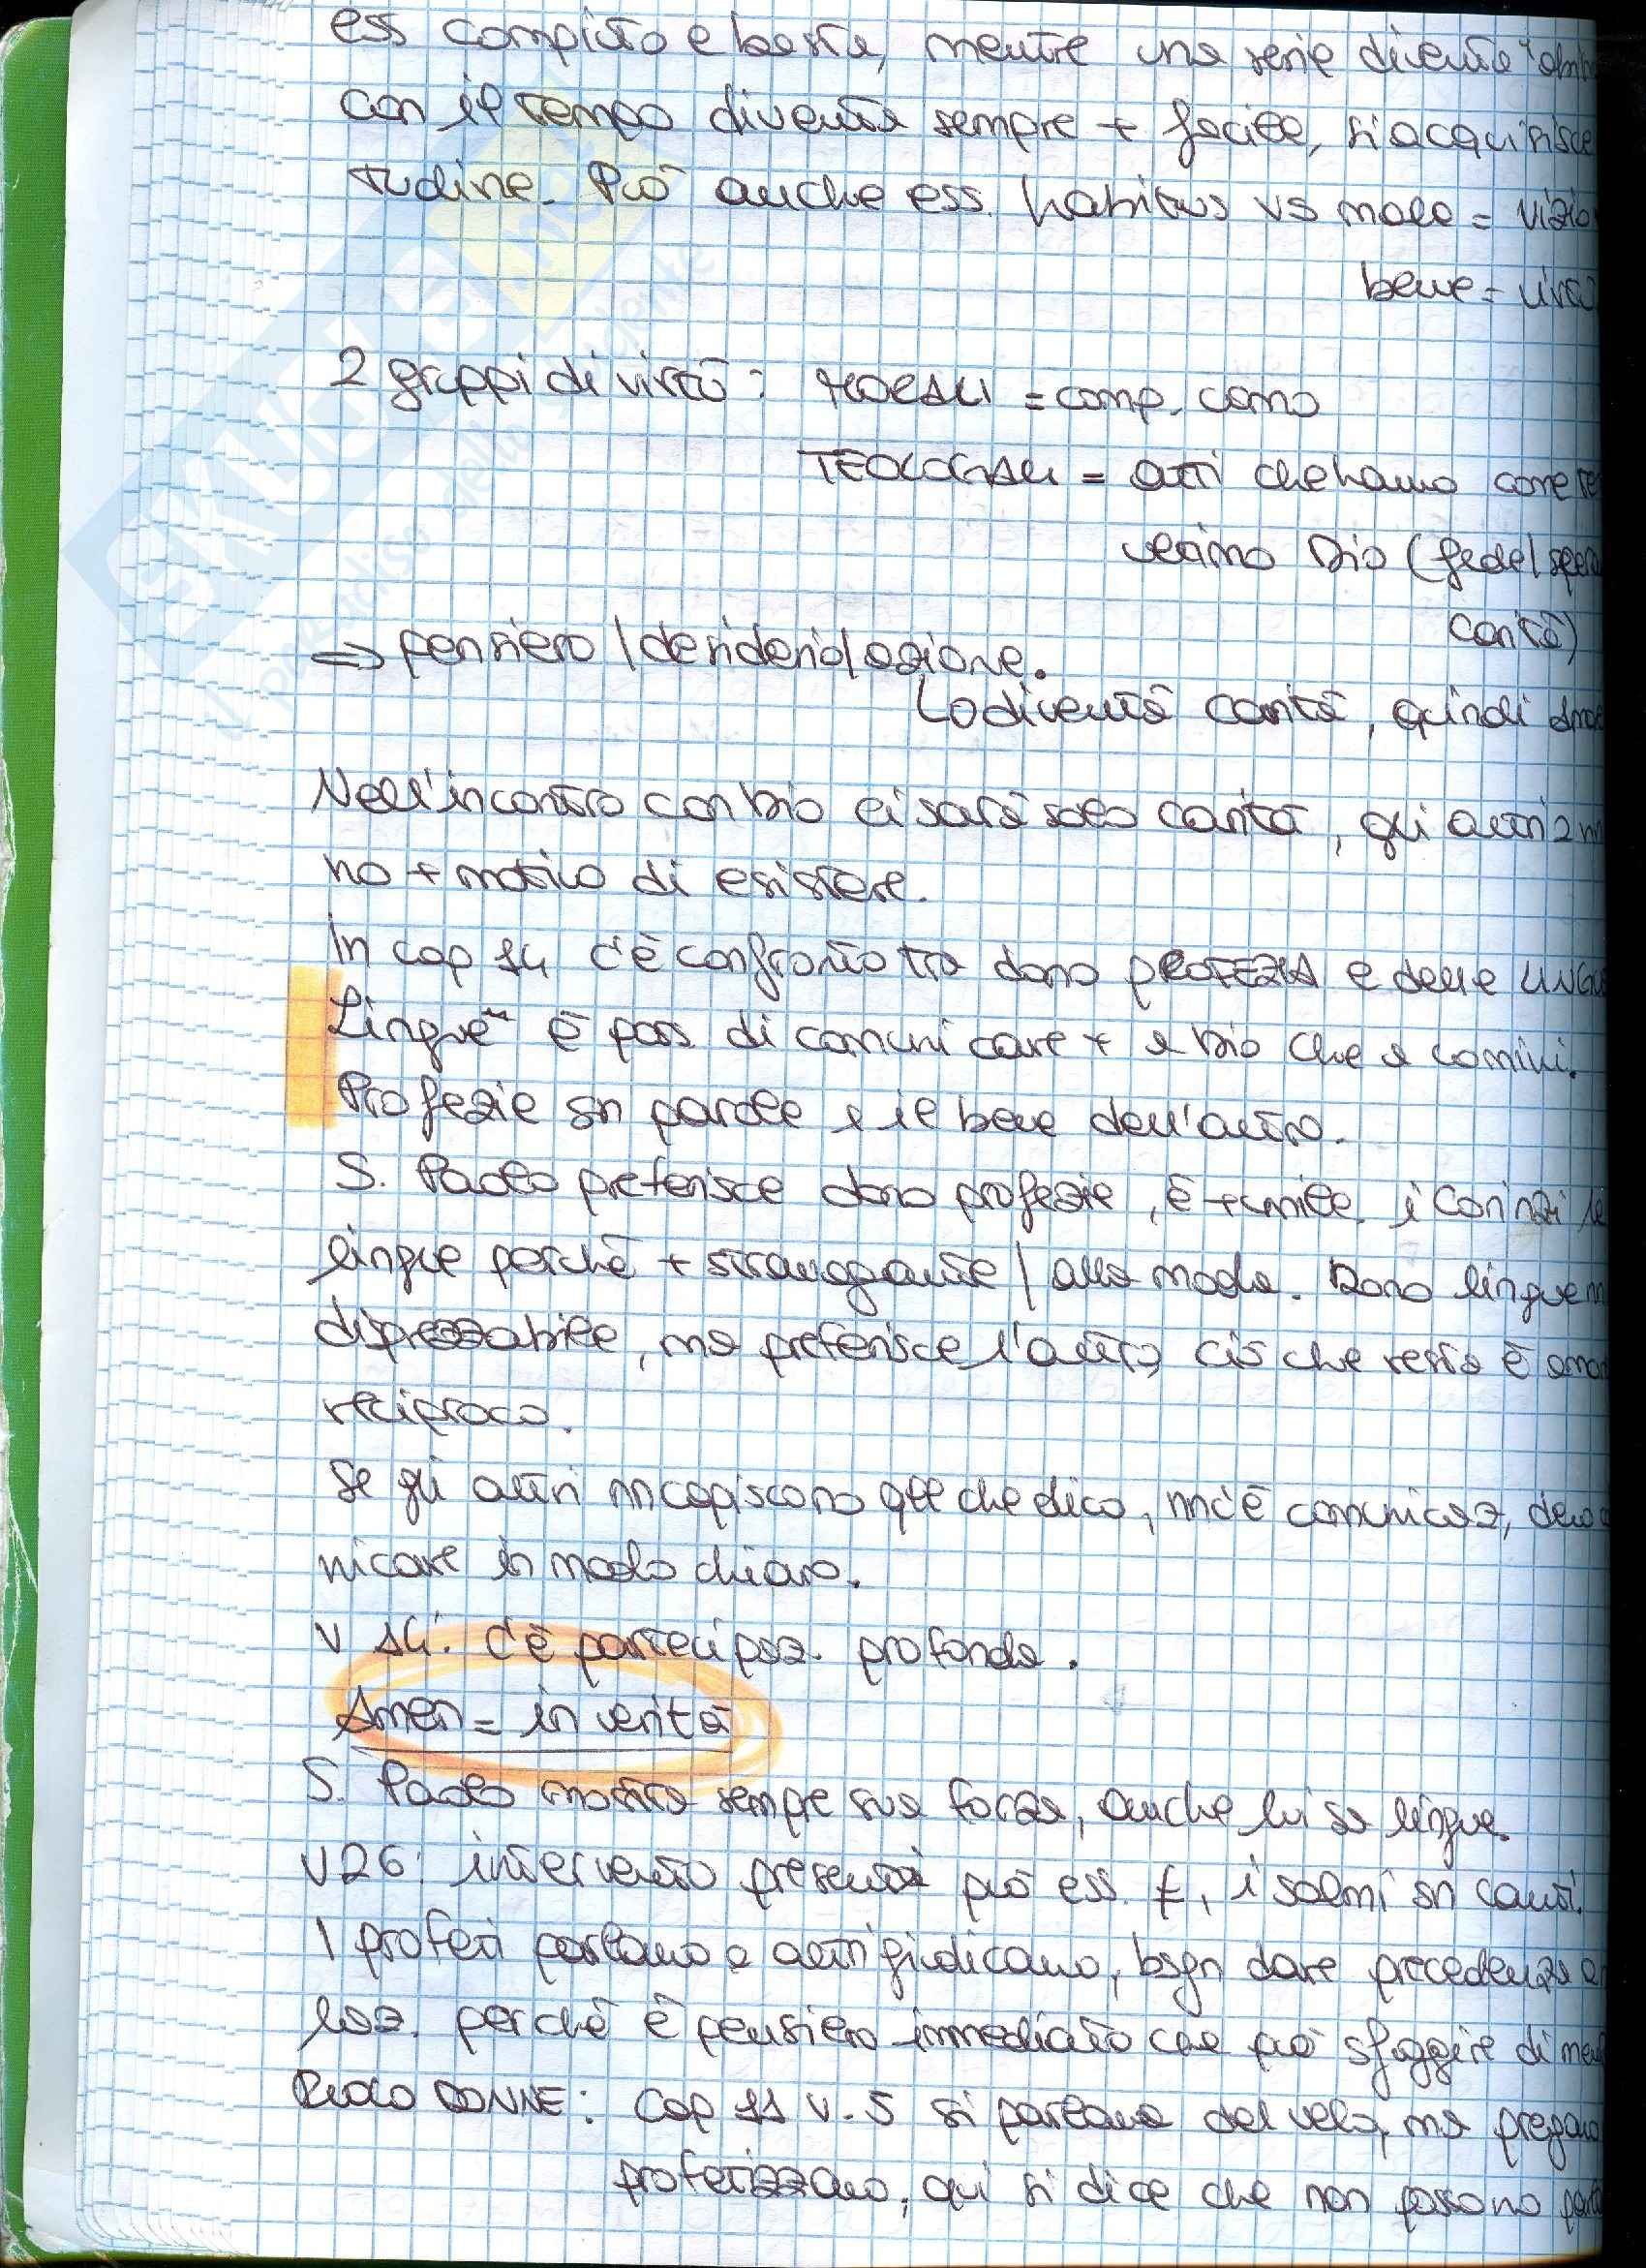 ess compiuto e basta, mentre una serie diventa "abi
con il tempo diventa sempre + facile, si acquisisce
tudine. Può anche ess. habitus vs male = vizio
bene = virtù
2 gruppi di virtù: MORALI = comp. uomo
TEOLOGALI = atti che hanno come te
SKUOLA.net
il paradiso dello studente
verimo Dio (fede/spera
carità)
=> pensiero/desiderio/azione.
Lo diventa carità, quindi amo
Nell'incontro con Dio ci sarà solo carità, gli altri 2 nn
no + motivo di esistere.
In cap 14 c'è confronto tra dono PROFEZIA e delle LINGU
Lingue è poss di comunicare + a Dio che a uomini.
Profezie sn parole x il bene dell'altro.
S. Paolo preferisce dono profezie, è + umile, i Corinzi le
lingue perchè + stravagante / alla moda. Dono lingue nn
disprezzabile, ma preferisce l'altro, ciò che resta è amo
reciproco.
Se gli altri nn capiscono qll che dico, nn c'è comunicaz, devo
nicare in modo chiaro.
v 14: c'è partecipaz. profonda.
Amen = in verità
S. Paolo mostra sempre sua forza, anche lui sa lingue.
v 26: intervento presenti può ess. ≠, i salmi sn canti.
I profeti parlano e altri giudicano, bsgn dare precedenza a
laz. perchè è pensiero immediato che può sfuggire di men
RUOLO DONNE: Cap 11 v. 5 si parlava del velo, ma pregano
profetizzano, qui si dice che non possono parla